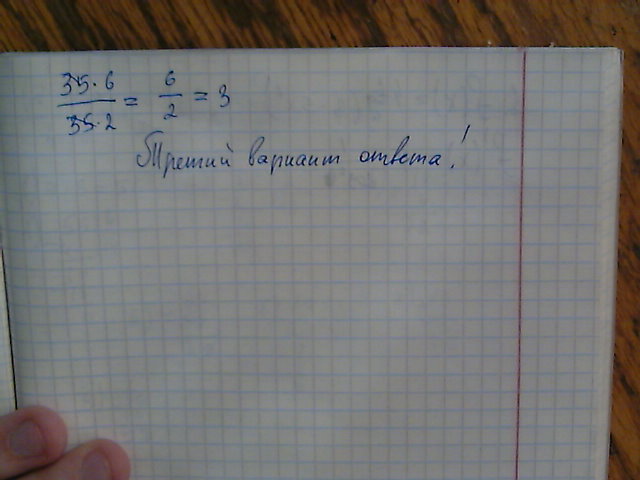 35·6/35·2 = 6/2 = 3
Третий вариант ответа!